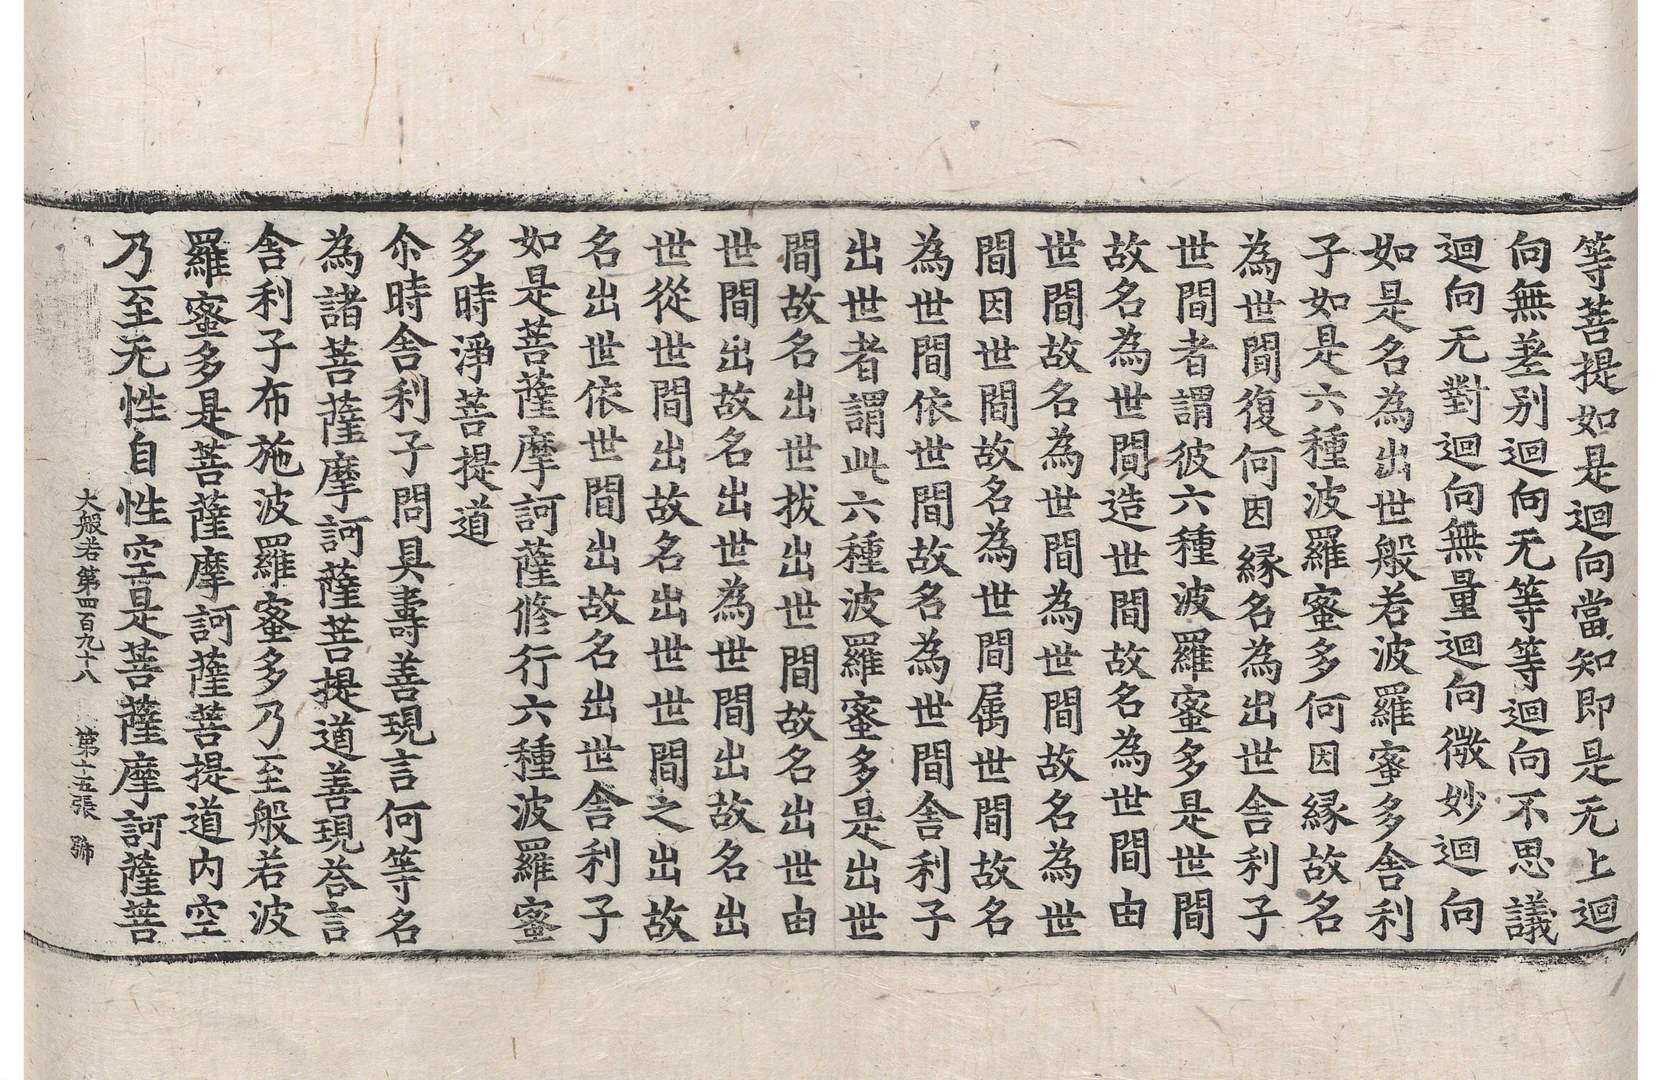 等菩提如是迴向當知即是无上迴
向無差别迴向无等等迴向不思議
迴向无對迴向無量迴向微妙迴向
如是名為出世般若波羅蜜多舍利
子如是六種波羅蜜多何因緣故名
為世間復何因緣名為出世舍利子
世間者謂彼六種波羅蜜多是世間
故名為世間造世間故名為世間由
世間故名為世間為世間故名為世
間因世間故名為世間属世間故名
為世間依世間故名為世間舍利子
出世者謂此六種波羅蜜多是出世
間故名出世拔出世間故名出世由
世間出故名出世為世間出故名出
世從世間出故名出世世間之出故
名出世依世間出故名出世舍利子
如是菩薩摩訶薩修行六種波羅蜜
多時淨菩提道
尒時舍利子問具壽善現言何等名
為諸菩薩摩訶薩菩提道善現荅言
舍利子布施波羅蜜多乃至般若波
羅蜜多是菩薩摩訶薩菩提道内空
乃至无性自性空是菩薩摩訶薩菩
大般若第四百九十八 第十五張 號